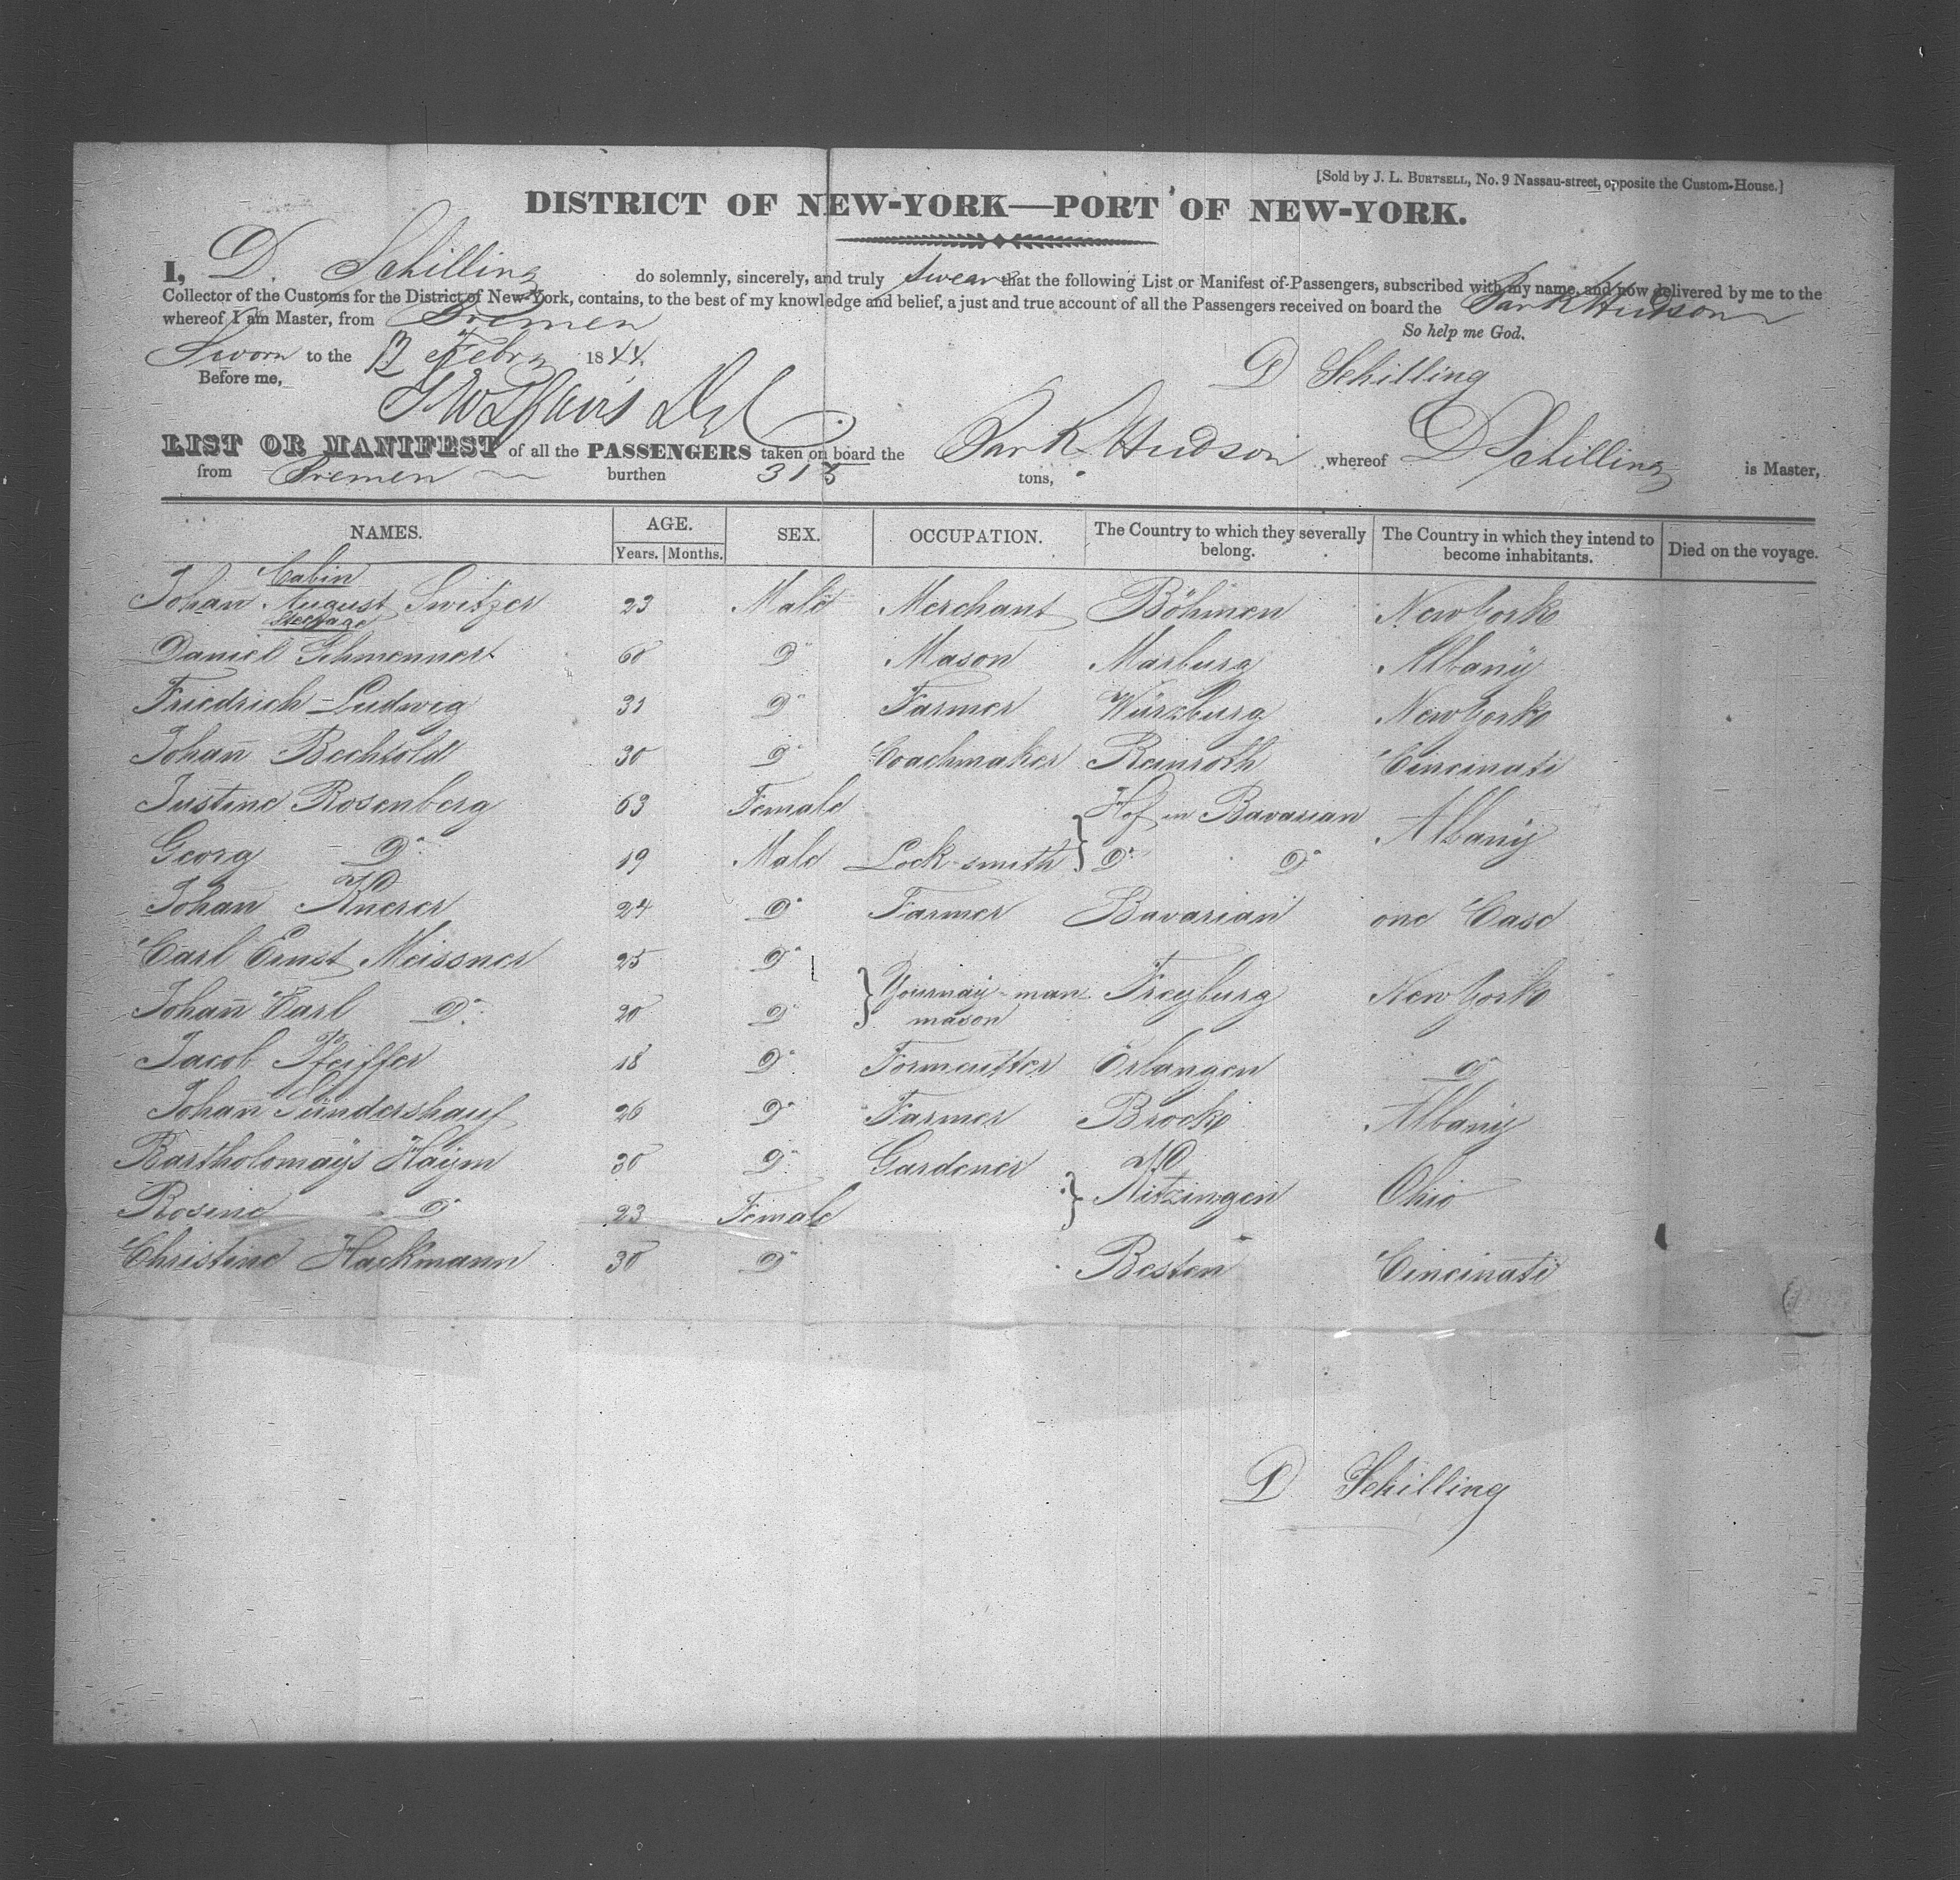 [Sold by J. L. BURTSELL, No. 9 Nassau-street, opposite the Custom-House.]
DISTRICT OF NEW-YORK—PORT OF NEW-YORK.
I, D. Schilling do solemnly, sincerely, and truly swear that the following List or Manifest of Passengers, subscribed with my name, and now delivered by me to the
Collector of the Customs for the District of New-York, contains, to the best of my knowledge and belief, a just and true account of all the Passengers received on board the Bark Hudson
whereof I am Master, from Bremen
So help me God.
Sworn to the Febr 1844.
Before me,
D Schilling
LIST OR MANIFEST of all the PASSENGERS taken on board the Bark Hudson whereof D Schilling is Master,
from Bremen burthen 313 tons,
NAMES. AGE. Years. Months. SEX. OCCUPATION. The Country to which they severally belong. The Country in which they intend to become inhabitants. Died on the voyage.
Cabin
Johan August Switzer 23 Male Merchant Böhmen New York
Steerage
Daniel 60 Do Mason Marburg Albany
Friedrich Ludwig 31 Do Farmer Würzburg New York
Johan Bechtold 30 Do Coachmaker Cincinati
Justine Rosenberg 63 Female Hof in Bavarian Albany
Georg Do 19 Male Lock-smith Do Do
Johan 24 Do Farmer Bavarian one Case
Carl Ernst Meissner 25 Do Yournay-man mason Freyburg New York
Johan Carl Do 20 Do
Jacob Pfeiffer 18 Do Formcutter Erlangen Do
Johan 26 Do Farmer Brocke Albany
Bartholomays Haÿm 30 Do Gardener Kitzingen Ohio
Rosine Do 23 Female
Christine Hackmann 30 Do Besten Cincinati
D Schilling